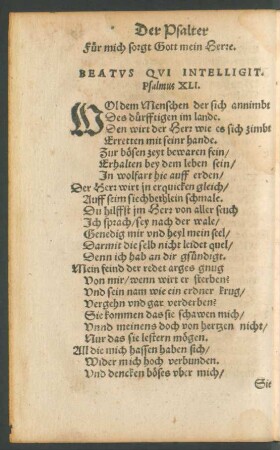 Der Psalter
Für mich sorgt Gott mein Herre.
BEATVS QVI INTELLIGIT.
Psalmus XLI.
WOl dem Menschen der sich annimbt
Des dürfftigen im lande.
Den wirt der Herr wie es sich zimbt
Erretten mit seinr hande.
Zur bösen zeyt bewaren fein/
Erhalten bey dem leben sein/
In wolfart hie auff erden/
Der Herr wirt jn erquicken gleich/
Auff seim siechbethlein schmale.
Du hilffst jm Herr von aller seuch
Ich sprach/ sey nach der wale/
Genedig mir vnd heyl mein seel/
Darmit die selb nicht leidet quel/
Denn ich hab an dir gsündigt.
Mein feind der redet arges gnug
Von mir/ wenn wirt er sterben?
Vnd sein nam wie ein erdner krug/
Vergehn vnd gar verderben?
Sie kommen das sie schawen mich/
Vnnd meinens doch von hertzen nicht/
Nur das sie lestern mögen.
All die mich hassen haben sich/
Wider mich hoch verbunden.
Vnd dencken böses vber mich/
Sie